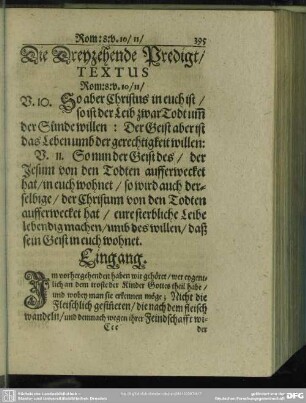 Rom: 8. v. 10/ 11/ 395
Die Dreyzehende Predigt/
TEXTUS
Rom: 8. v. 10/ 11/
V. 10. So aber Christus in euch ist/
so ist der Leib zwar Todt umb
der Sünde willen: Der Geist aber ist
das Leben umb der gerechtigkeit willen:
V. 11. So nun der Geist des/ der
Jesum von den Todten aufferwecket
hat/ in euch wohnet/ so wird auch der-
selbige/ der Christum von den Todten
aufferwecket hat/ eure sterbliche Leibe
lebendig machen/ umb des willen/ daß
sein Geist in euch wohnet.
Eingang.
Im vorhergehenden haben wir gehöret/ wer eygent-
lich an dem troste der Kinder Gottes theil habe/
und wobey man sie erkennen möge; Nicht die
Fleischlich gesineten/ die nach dem fleisch
wandeln/ und demnach wegen ihrer Feindschafft wi-
Ccc der